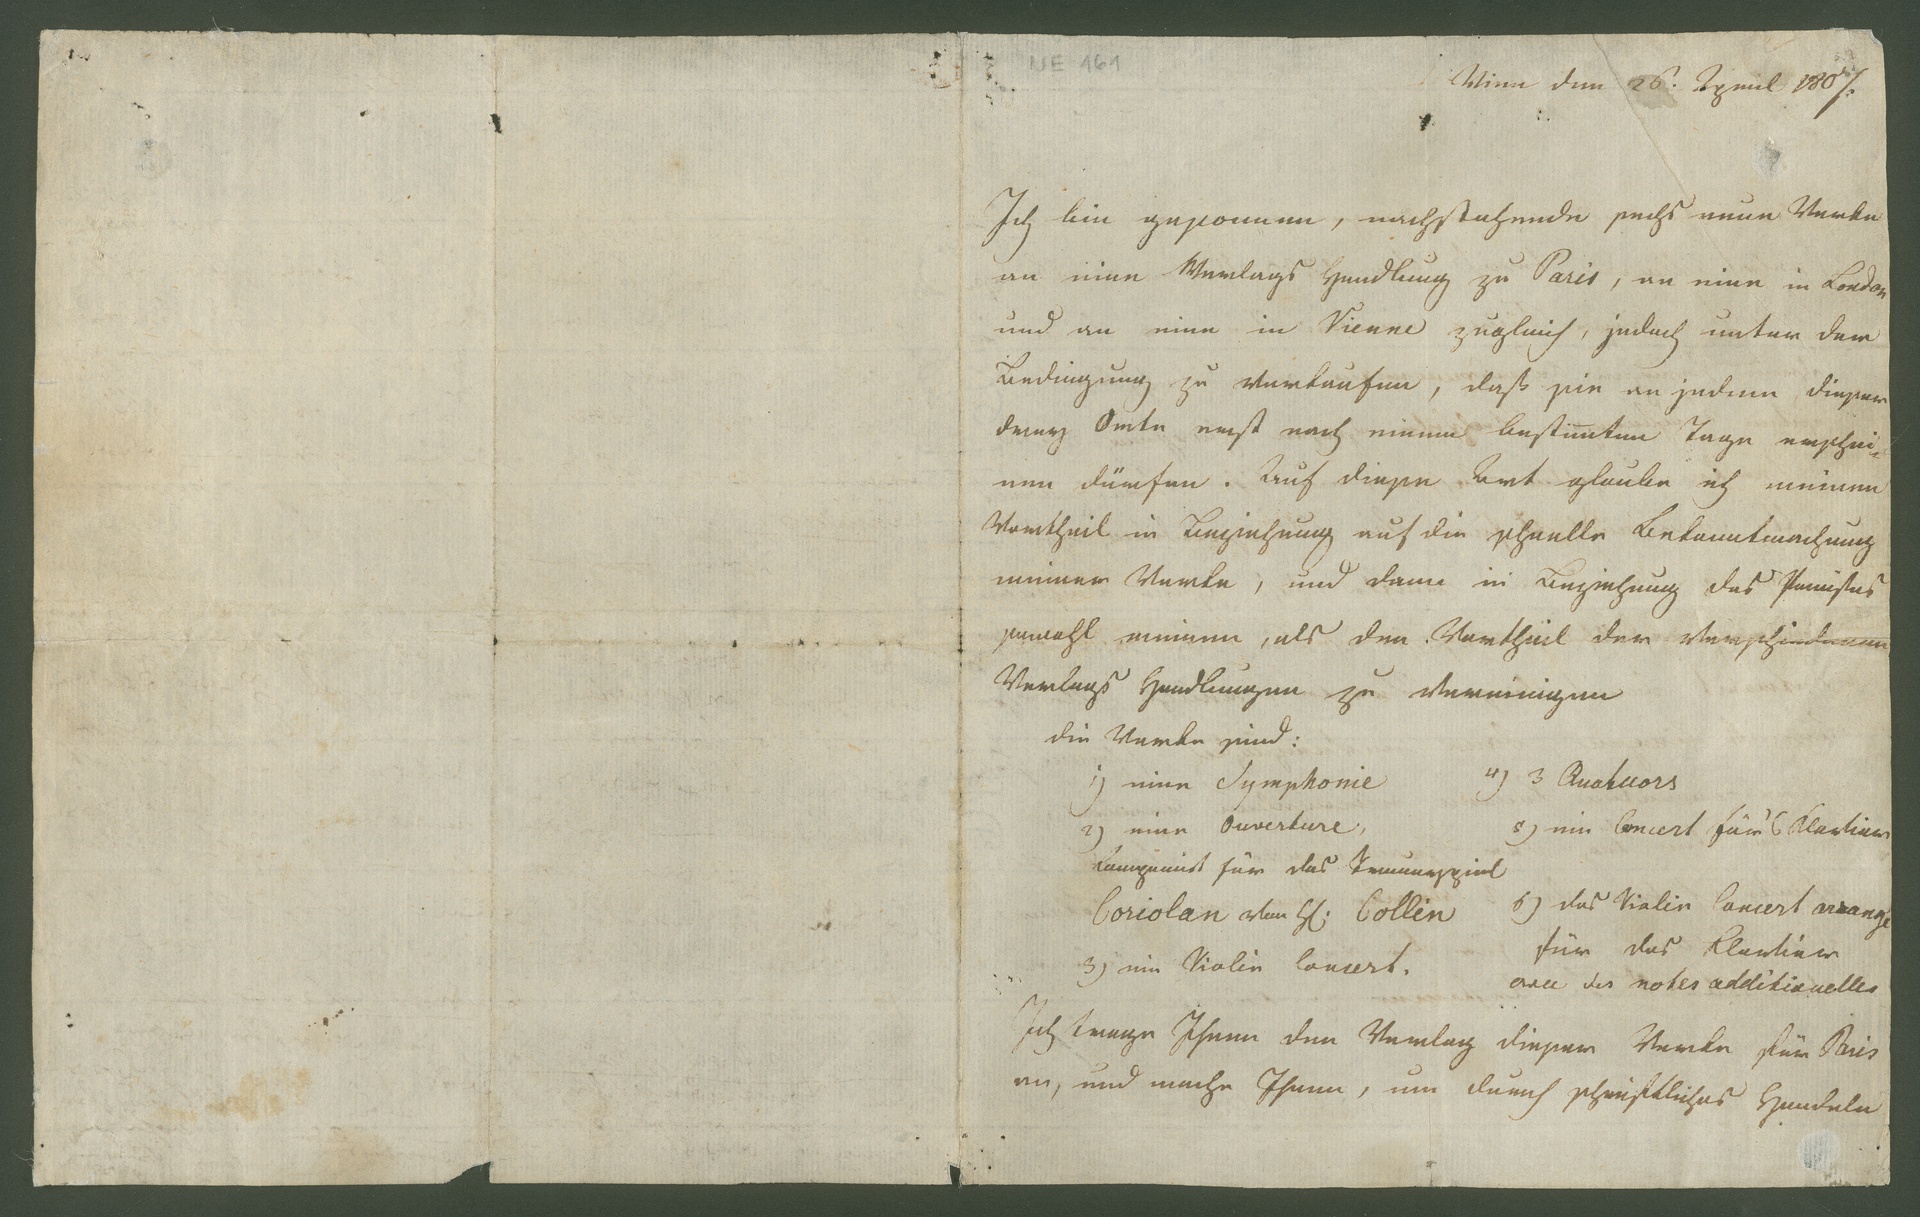 NE 161
Wien den 26. April 1807.
Ich bin gesonnen, nachstehende sechs neue Werke
an eine Verlags Handlung zu Paris, an eine in London
und an eine in Vienne zugleich, jedoch unter der
Bedingung zu verkaufen, daß sie an jedem dieser
drey Orte erst nach einem bestimten Tage erschei-
nen dürfen. Auf diese Art glaube ich meinen
Vortheil in Beziehung auf die schnelle Bekanntmachung
meiner Werke, und dann in Beziehung des Preises
sowohl meinen, als den Vortheil der verschiedenen
Verlags Handlungen zu vereinigen
die Werke sind:
1) eine Symphonie
2) eine Ouverture,
komponirt für das Trauerspiel
Coriolan von H: Collin
3) ein Violin Concert.
4) 3 Quatuors
5) ein Concert für's Klavier
6) das Violin Concert arrangé
für das Klavier
avec des notes additionelles
Ich trage Ihnen den Verlag dieser Werke für Paris
an, und mache Ihnen, um durch schriftliches Handeln